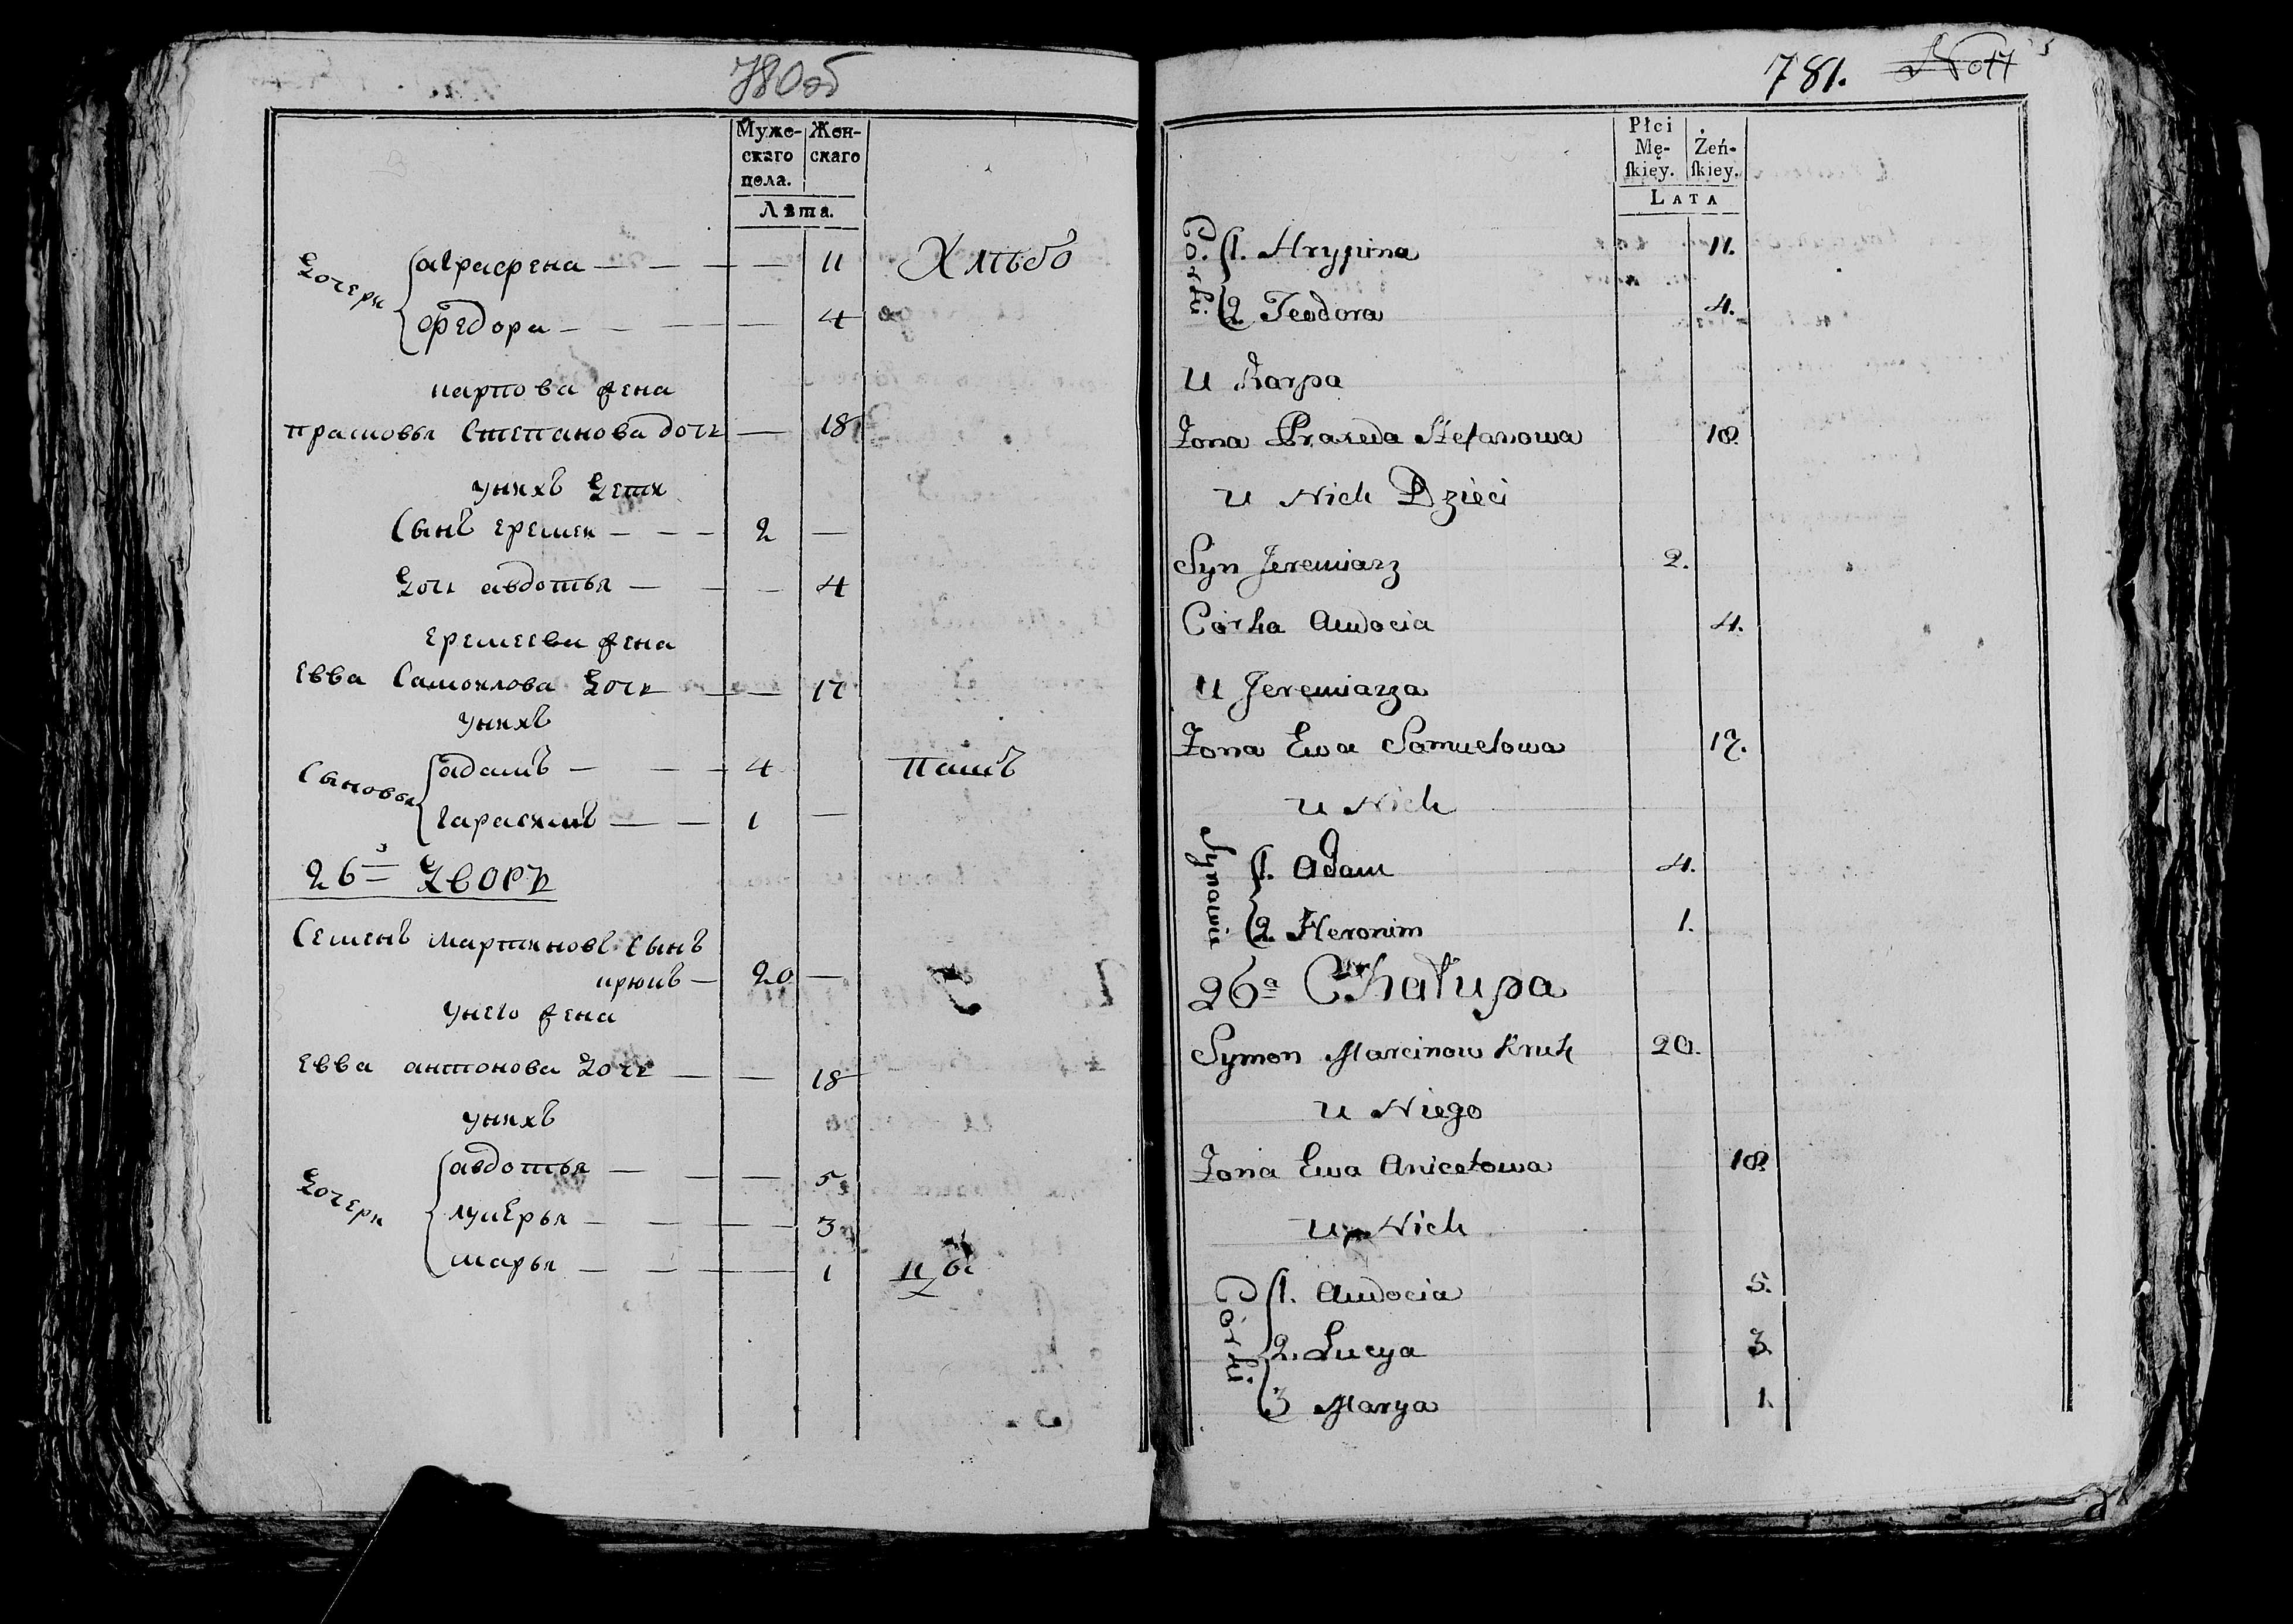 780об
Муже- Жен-
скаго скаго
пола.
Лѣта.
Дочери
аграфена — — — — 11
федора — — — — 4
карпова жена
прасковья Степанова дочь — 18
у нихъ Дети
Сынъ еремей — — — 2 —
Дочь авдотья — — — 4
еремеева жена
Евва Самойлова Дочь — — 17
у нихъ
Сыновья
адамъ — — — 4
гарасимъ — — 1 —
26й Дворъ
Семенъ мартиновъ Сынъ
крюкъ — 20 —
у него жена
Евва антонова Дочь — — 18
у нихъ
Дочери
авдотья — — — 5
лукерья — — — — 3
марья — — — — 1
781.
Płci
Mę- Żeń-
skiey. skiey.
LATA
Córki
1. Hrypina 11.
2 Teodora 4.
u Karpa
Zona Praxeda Stefanowa 18.
u Nich Dzieci
Syn Jeremiarz 2.
Córka Audocia 4.
u Jeremiarza
Zona Ewa Samuelowa 17.
u Nich
Synowie
1. Adam 4.
2. Heronim 1.
26a Chałupa
Symon Marcinow Kruk 20.
u Niego
Zona Ewa Anicetowa 18
u Nich
Córki
1. Audocia 5.
2. Lucya 3.
3 Marya 1.